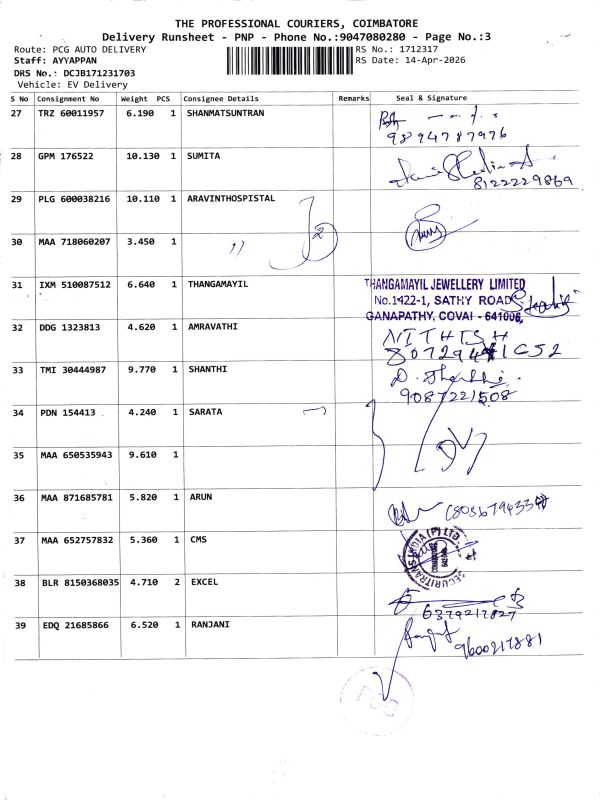 THE PROFESSIONAL COURIERS, COIMBATORE
Delivery Runsheet - PNP - Phone No.:9047080280 - Page No.:3
Route: PCG AUTO DELIVERY
Staff: AYYAPPAN
DRS No.: DCJB171231703
Vehicle: EV Delivery
RS No.: 1712317
RS Date: 14-Apr-2026
S No Consignment No Weight PCS Consignee Details Remarks Seal & Signature
27 TRZ 60011957 6.190 1 SHANMATSUNTRAN
9894787976
28 GPM 176522 10.130 1 SUMITA
8122229869
29 PLG 600038216 10.110 1 ARAVINTHOSPISTAL
2
30 MAA 718060207 3.450 1
31 IXM 510087512 6.640 1 THANGAMAYIL
THANGAMAYIL JEWELLERY LIMITED
No.1422-1, SATHY ROAD
GANAPATHY, COVAI - 641006.
32 DDG 1323813 4.620 1 AMRAVATHI
NITHISH
33 TMI 30444987 9.770 1 SHANTHI
9087221508
34 PDN 154413 4.240 1 SARATA
35 MAA 650535943 9.610 1
36 MAA 871685781 5.820 1 ARUN
37 MAA 652757832 5.360 1 CMS
SECURITRANS INDIA (P) LTD.
38 BLR 8150368035 4.710 2 EXCEL
6379217827
39 EDQ 21685866 6.520 1 RANJANI
9600217881